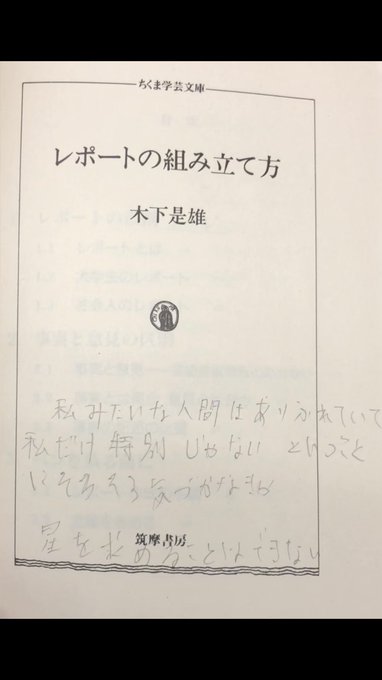 ちくま学芸文庫
レポートの組み立て方
木下是雄
私みたいな人間はありふれていて
私だけ特別じゃないということ
にそろそろ気づかなきゃ
星を求めることはできない
筑摩書房